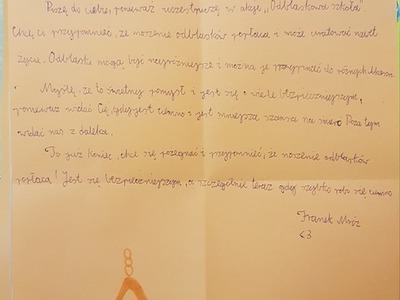 Piszę do ciebie, ponieważ uczestniczę w akcji „Odblaskowa szkoła”.
Chcę ci przypomnieć, że noszenie odblasków popłaca i może uratować nawet
życie. Odblaski mogą być najróżniejsze i można je przypinać do różnych
Myślę, że to świetny pomysł i jest się o wiele bezpieczniejszym,
ponieważ widać Cię, gdy jest ciemno i jest mniejsza szansa na Poza tym
widać nas z daleka.
To już koniec, chcę się pożegnać i przypomnieć, że noszenie odblasków
popłaca! Jest się bezpieczniejszym, a szczególnie teraz gdy szybko robi się ciemno
Franek Mróz
<3